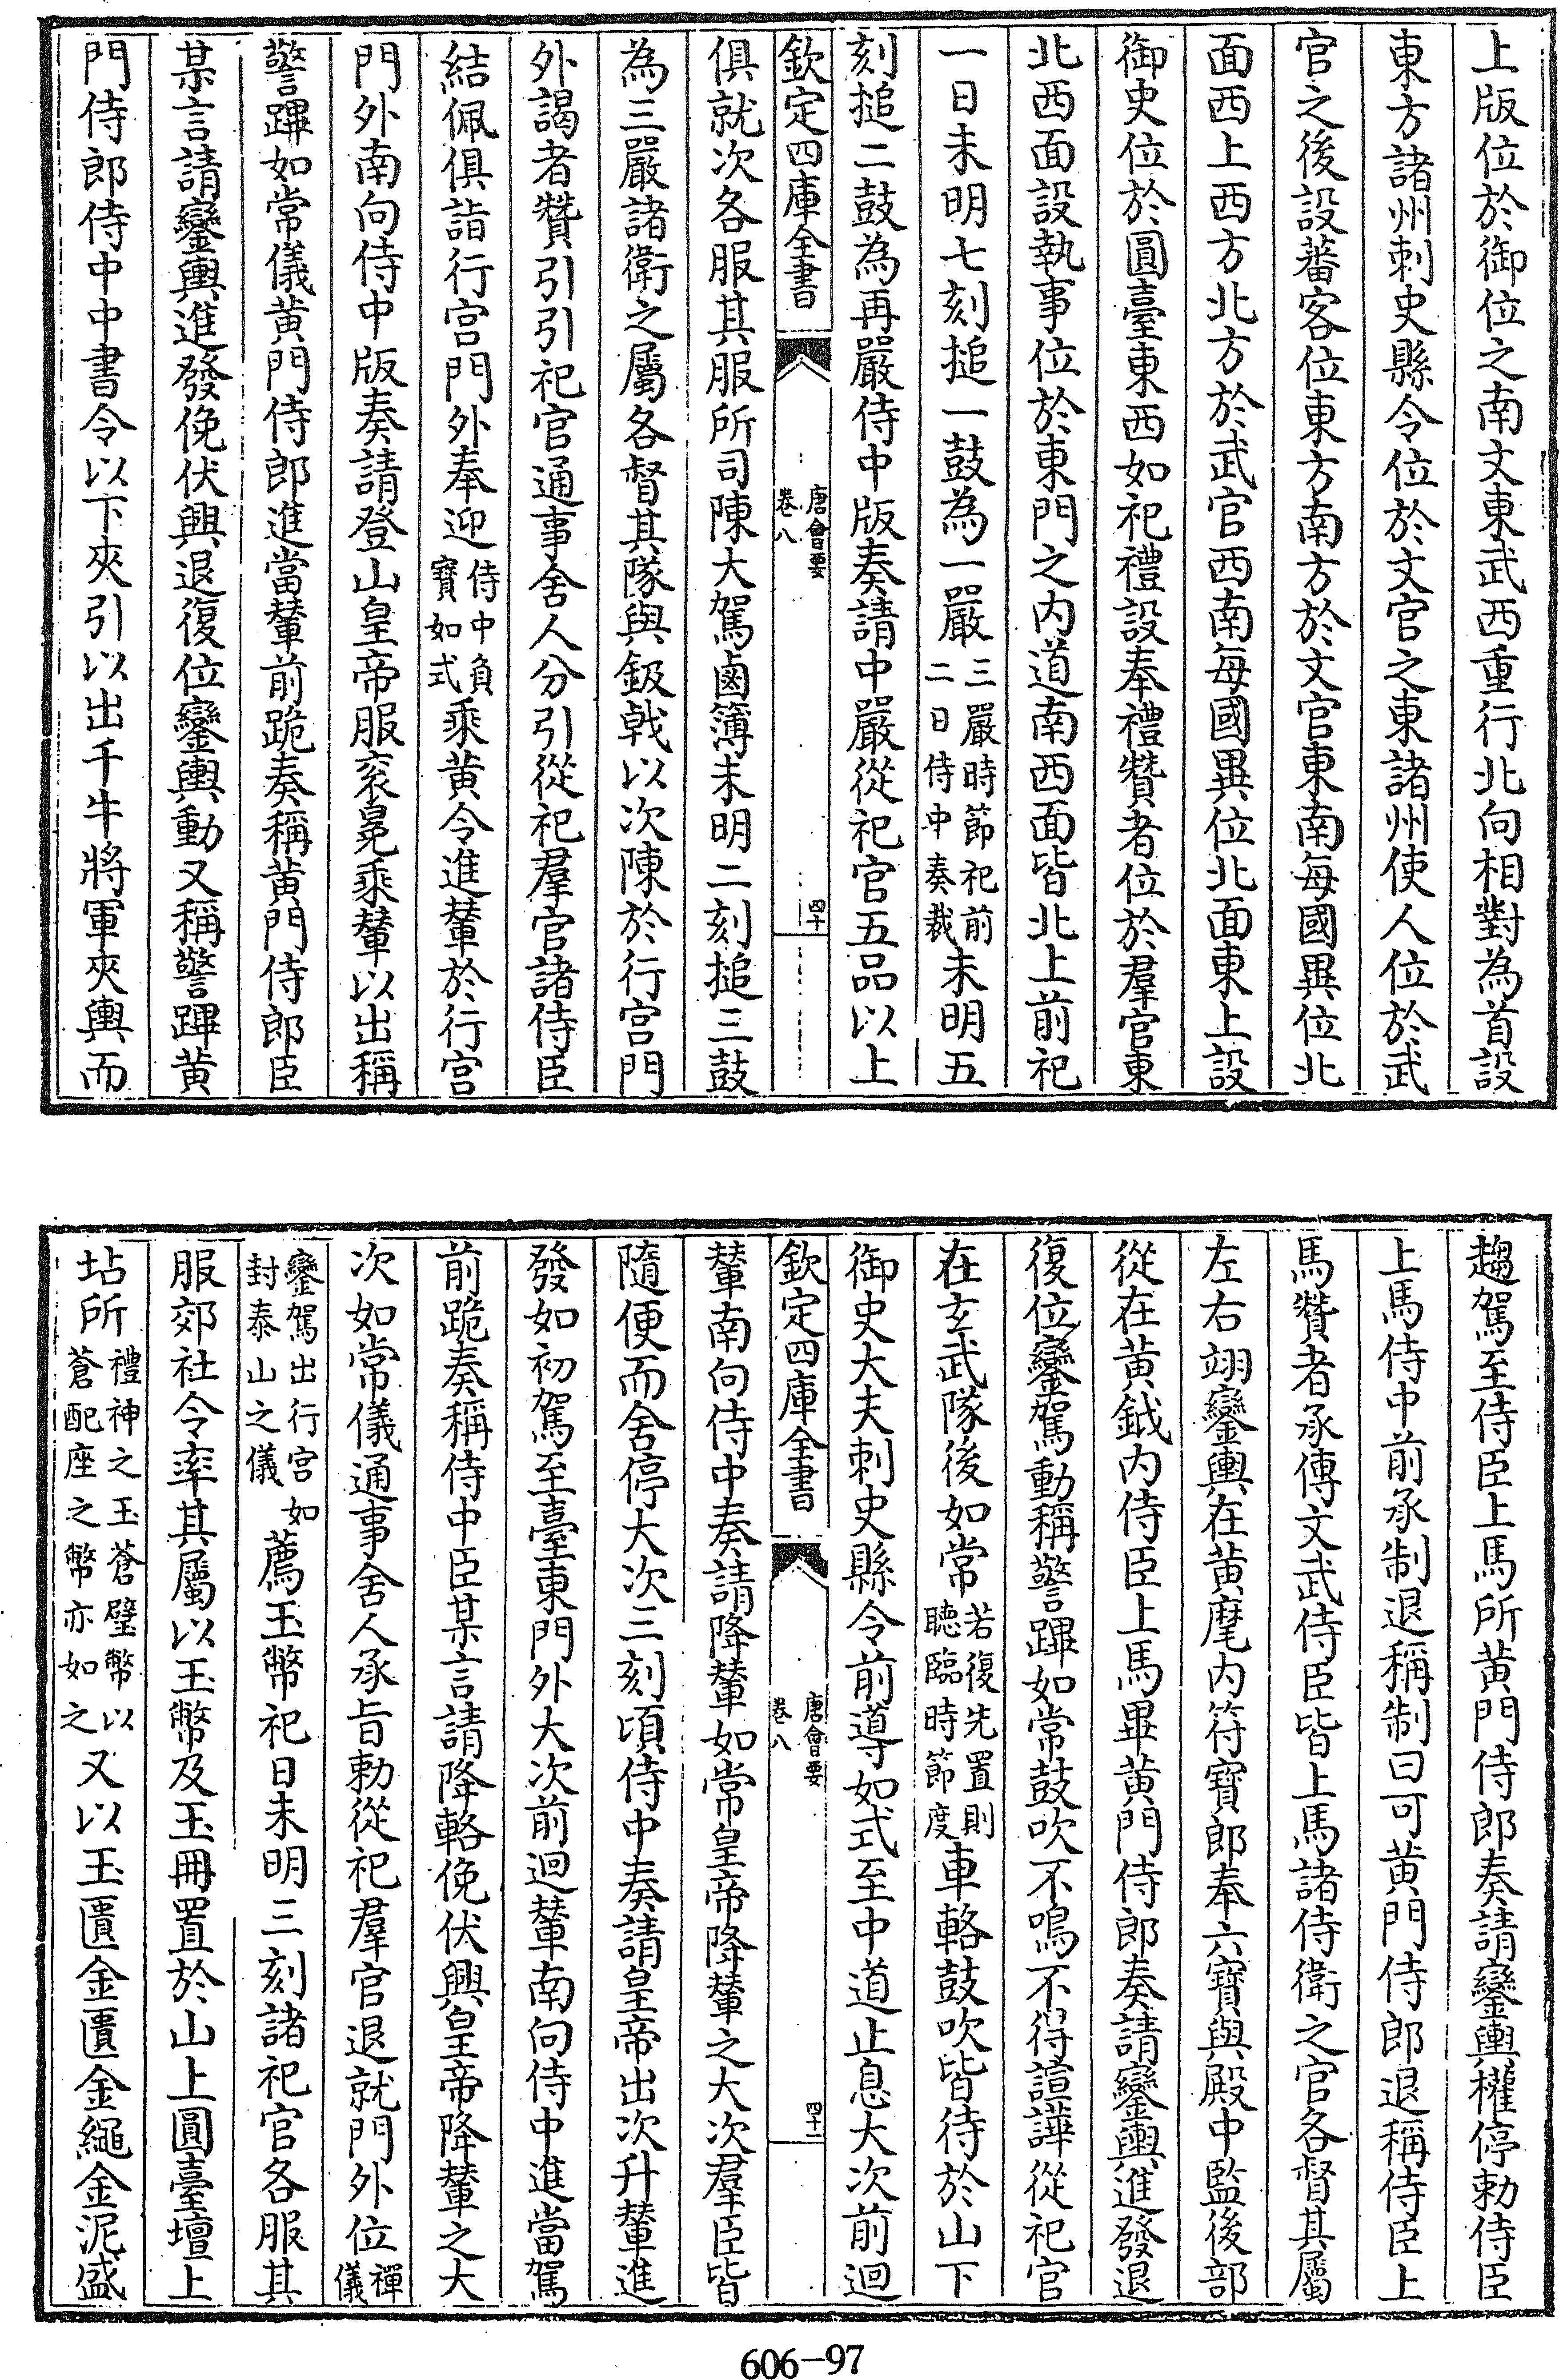 上版位於御位之南文東武西重行北向相對為首設
東方諸州刺史縣令位於文官之東諸州使人位於武
官之後設蕃客位東方南方於文官東南每國異位北
面西上西方北方於武官西南每國異位北面東上設
御史位於圓臺東西如祀禮設奉禮贊者位於羣官東
北西面設執事位於東門之内道南西面皆北上前祀
一日未明七刻搥一鼓為一嚴三嚴時節祀前二日侍中奏裁未明五
刻搥二鼓為再嚴侍中版奏請中嚴從祀官五品以上
欽定四庫全書 唐會要 卷八 四十
俱就次各服其服所司陳大駕鹵簿未明二刻搥三鼓
為三嚴諸衛之屬各督其隊與鈒戟以次陳於行宫門
外謁者贊引引祀官通事舍人分引從祀羣官諸侍臣
結佩俱詣行宫門外奉迎侍中負寳如式乘黄令進輦於行宫
門外南向侍中版奏請登山皇帝服衮冕乘輦以出稱
警蹕如常儀黄門侍郎進當輦前跪奏稱黄門侍郎臣
某言請鑾輿進發俛伏興退復位鑾輿動又稱警蹕黄
門侍郎侍中中書令以下夾引以出千牛將軍夾輿而
趨駕至侍臣上馬所黄門侍郎奏請鑾輿權停勅侍臣
上馬侍中前承制退稱制曰可黄門侍郎退稱侍臣上
馬贊者承傳文武侍臣皆上馬諸侍衛之官各督其屬
左右翊鑾輿在黄麾内符寳郎奉六寳與殿中監後部
從在黄鉞内侍臣上馬畢黄門侍郎奏請鑾輿進發退
復位鑾駕動稱警蹕如常鼓吹不鳴不得諠譁從祀官
在玄武隊後如常若復先置則聽臨時節度車輅鼓吹皆待於山下
御史大夫刺史縣令前導如式至中道止息大次前迴
欽定四庫全書 唐會要 卷八 四十一
輦南向侍中奏請降輦如常皇帝降輦之大次羣臣皆
隨便而舍停大次三刻頃侍中奏請皇帝出次升輦進
發如初駕至臺東門外大次前迴輦南向侍中進當駕
前跪奏稱侍中臣某言請降輅俛伏興皇帝降輦之大
次如常儀通事舍人承旨勅從祀羣官退就門外位禪儀
鑾駕出行宫如封泰山之儀薦玉幣祀日未明三刻諸祀官各服其
服郊社令率其屬以玉幣及玉冊置於山上圓臺壇上
坫所禮神之玉蒼璧幣以蒼配座之幣亦如之又以玉匱金匱金繩金泥盛
606-97